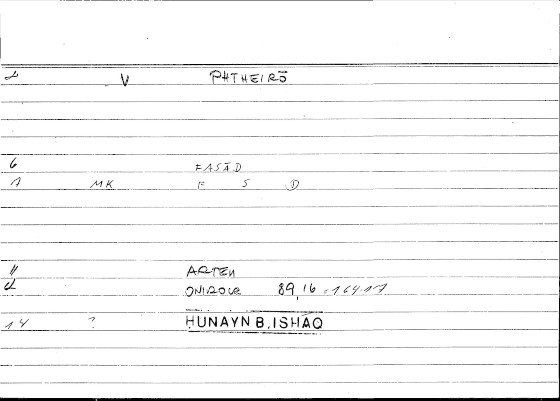 V PHTHEIRŌ
6 FASĀD
1 MK F S D
11 ARTEM
ONIROCR 89,16 = 164.17
14 ? HUNAYN B. ISHĀQ